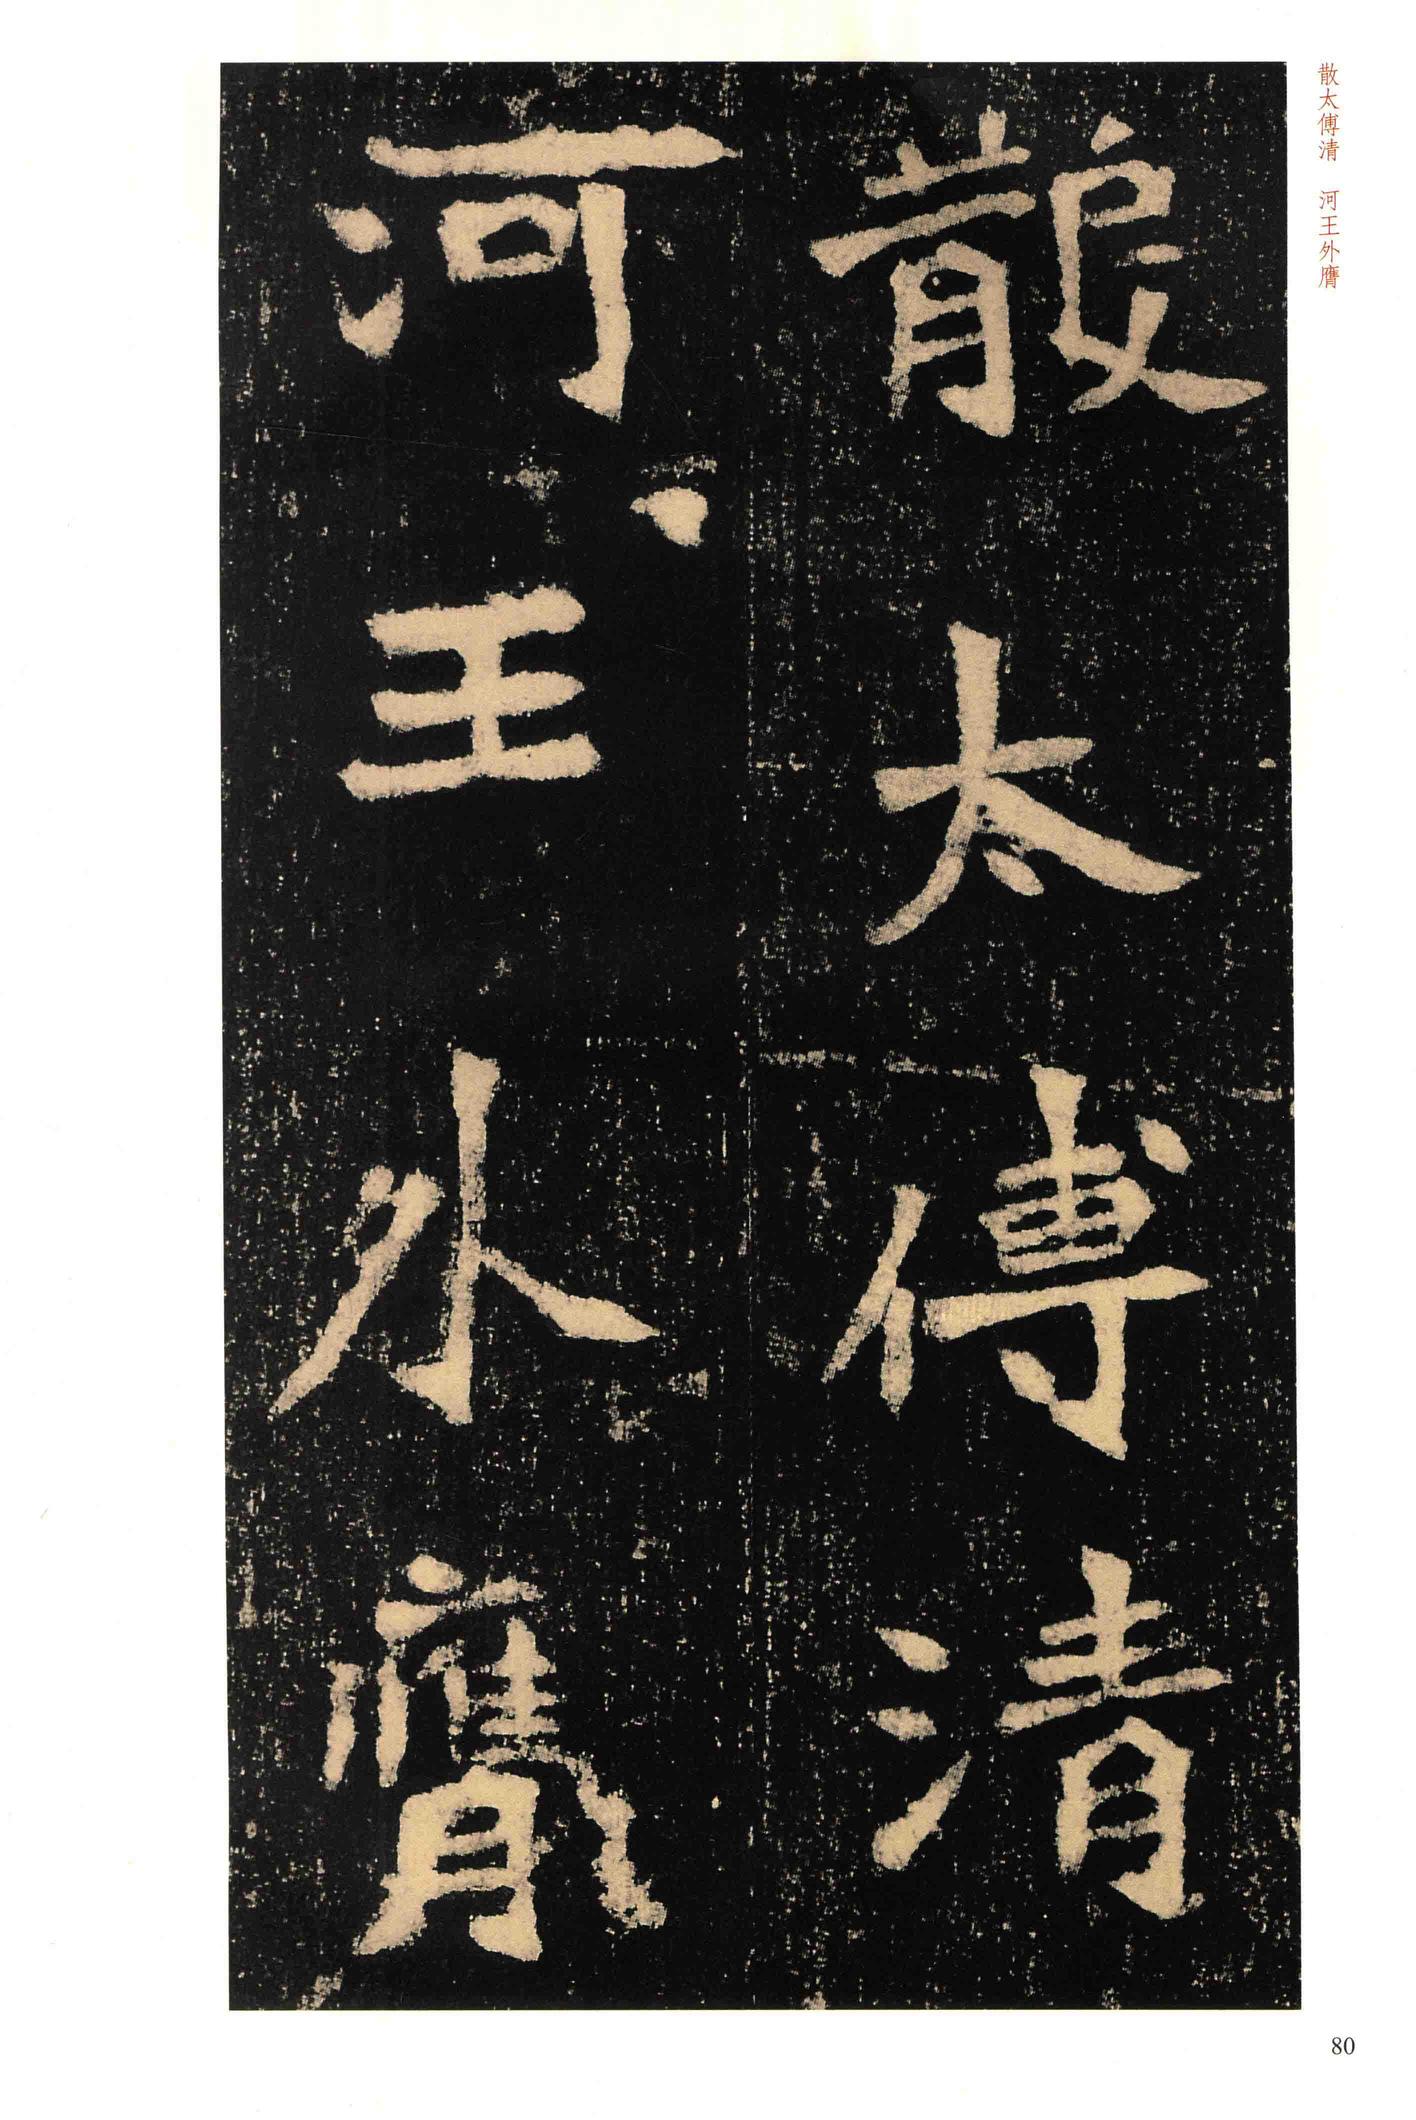 散太傅清　河王外膺
散太傅清
河王外膺
80